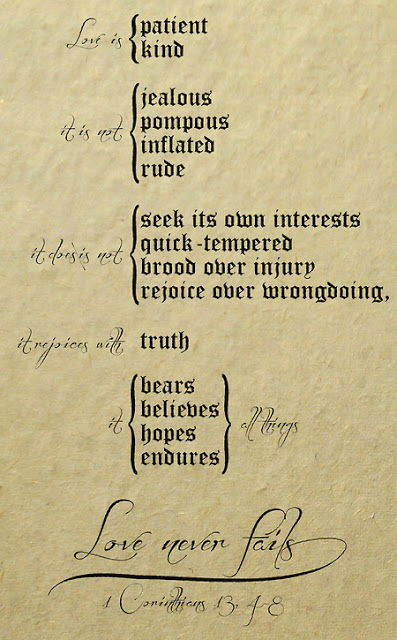 Love is
patient
kind
it is not
jealous
pompous
inflated
rude
it does\is not
seek its own interests
quick-tempered
brood over injury
rejoice over wrongdoing,
it rejoices with truth
it
bears
believes
hopes
endures
all things
Love never fails
1 Corinthians 13, 4-8